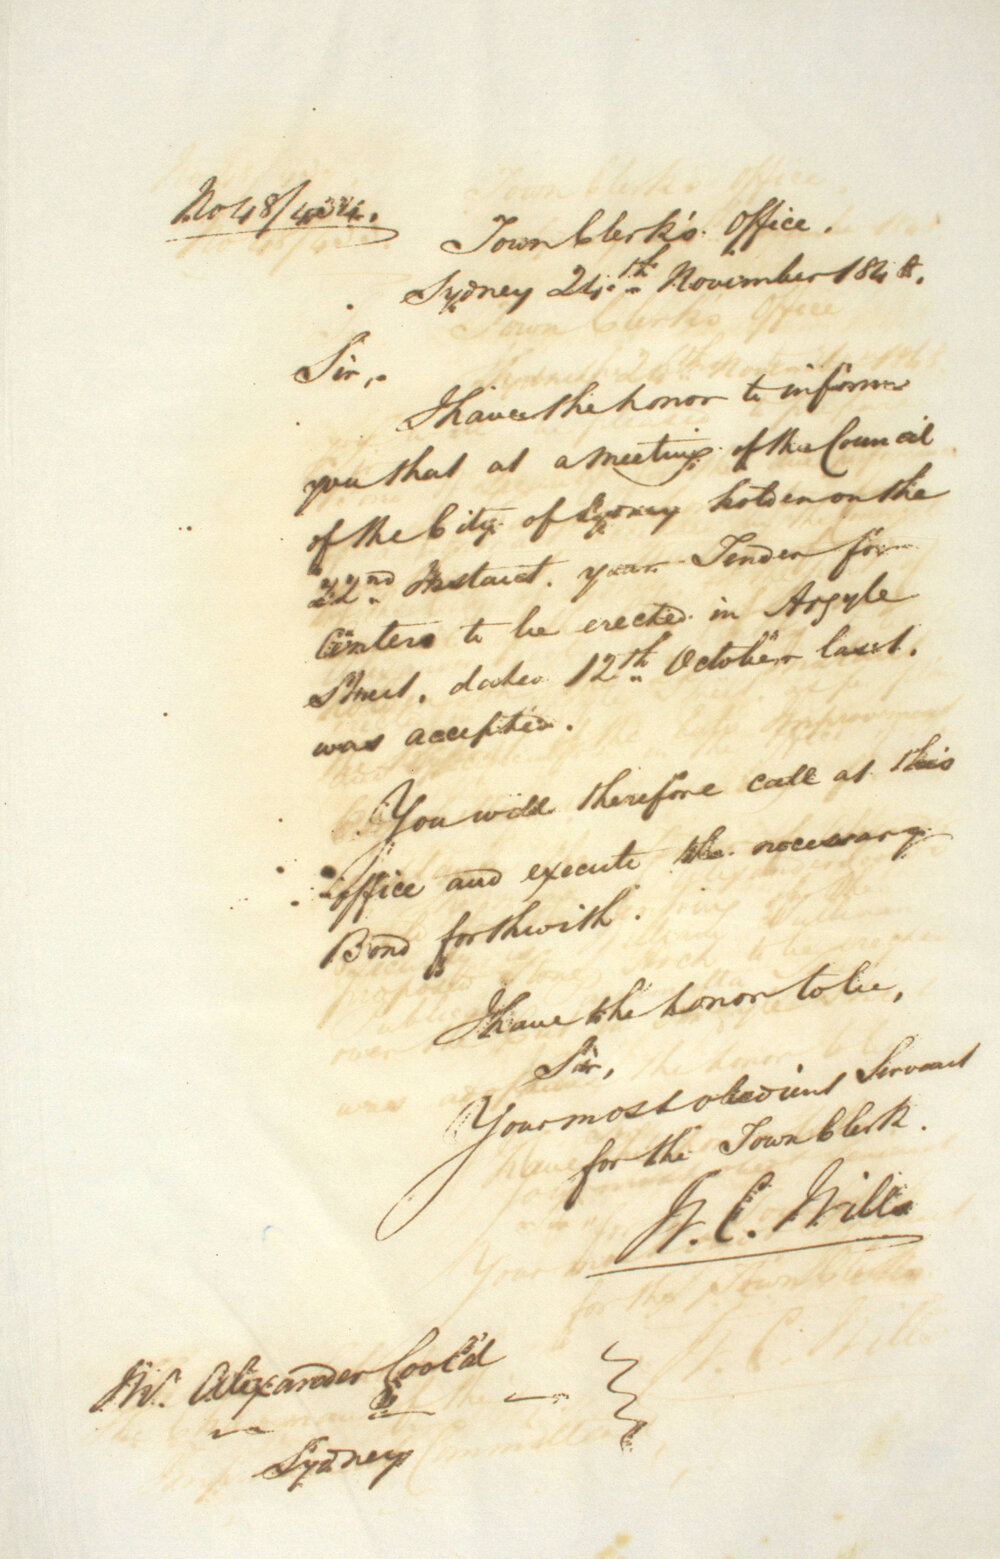 No 48/
Town Clerk's Office.
Sydney 24th November 184
Sir,
I have the honor to inform
you that at a meeting of the Council
of the City of Sydney holden on the
22nd Instant. your Tender for
Centers to be erected in Argyle
Street, dated 12th October last.
was accepted.
You will therefore call at this
office and execute the necessary
Bond forthwith.
I have the honor to be,
Sir,
Your most obedient Servant
for the Town Clerk.
W. C. Wills
Mr. Alexander
Sydney